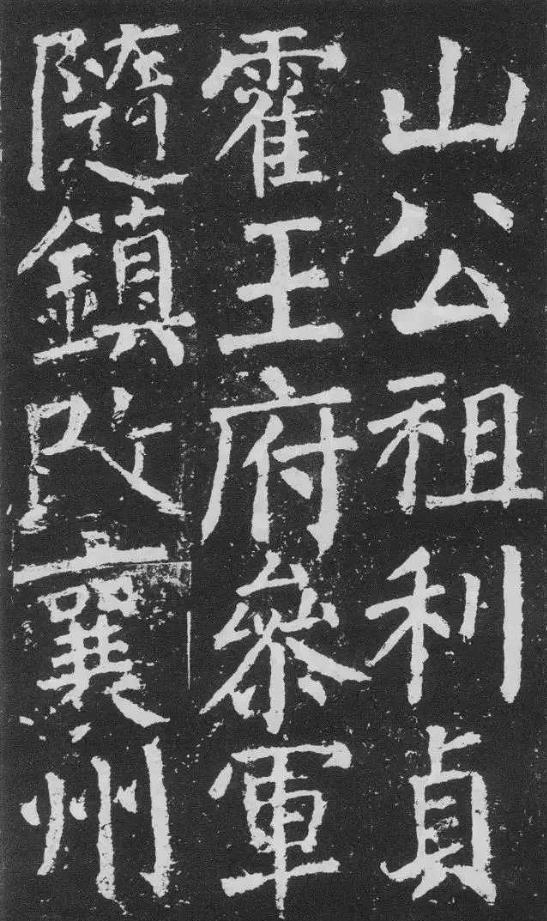 山公祖利貞
霍王府參軍
隨鎮改襄州